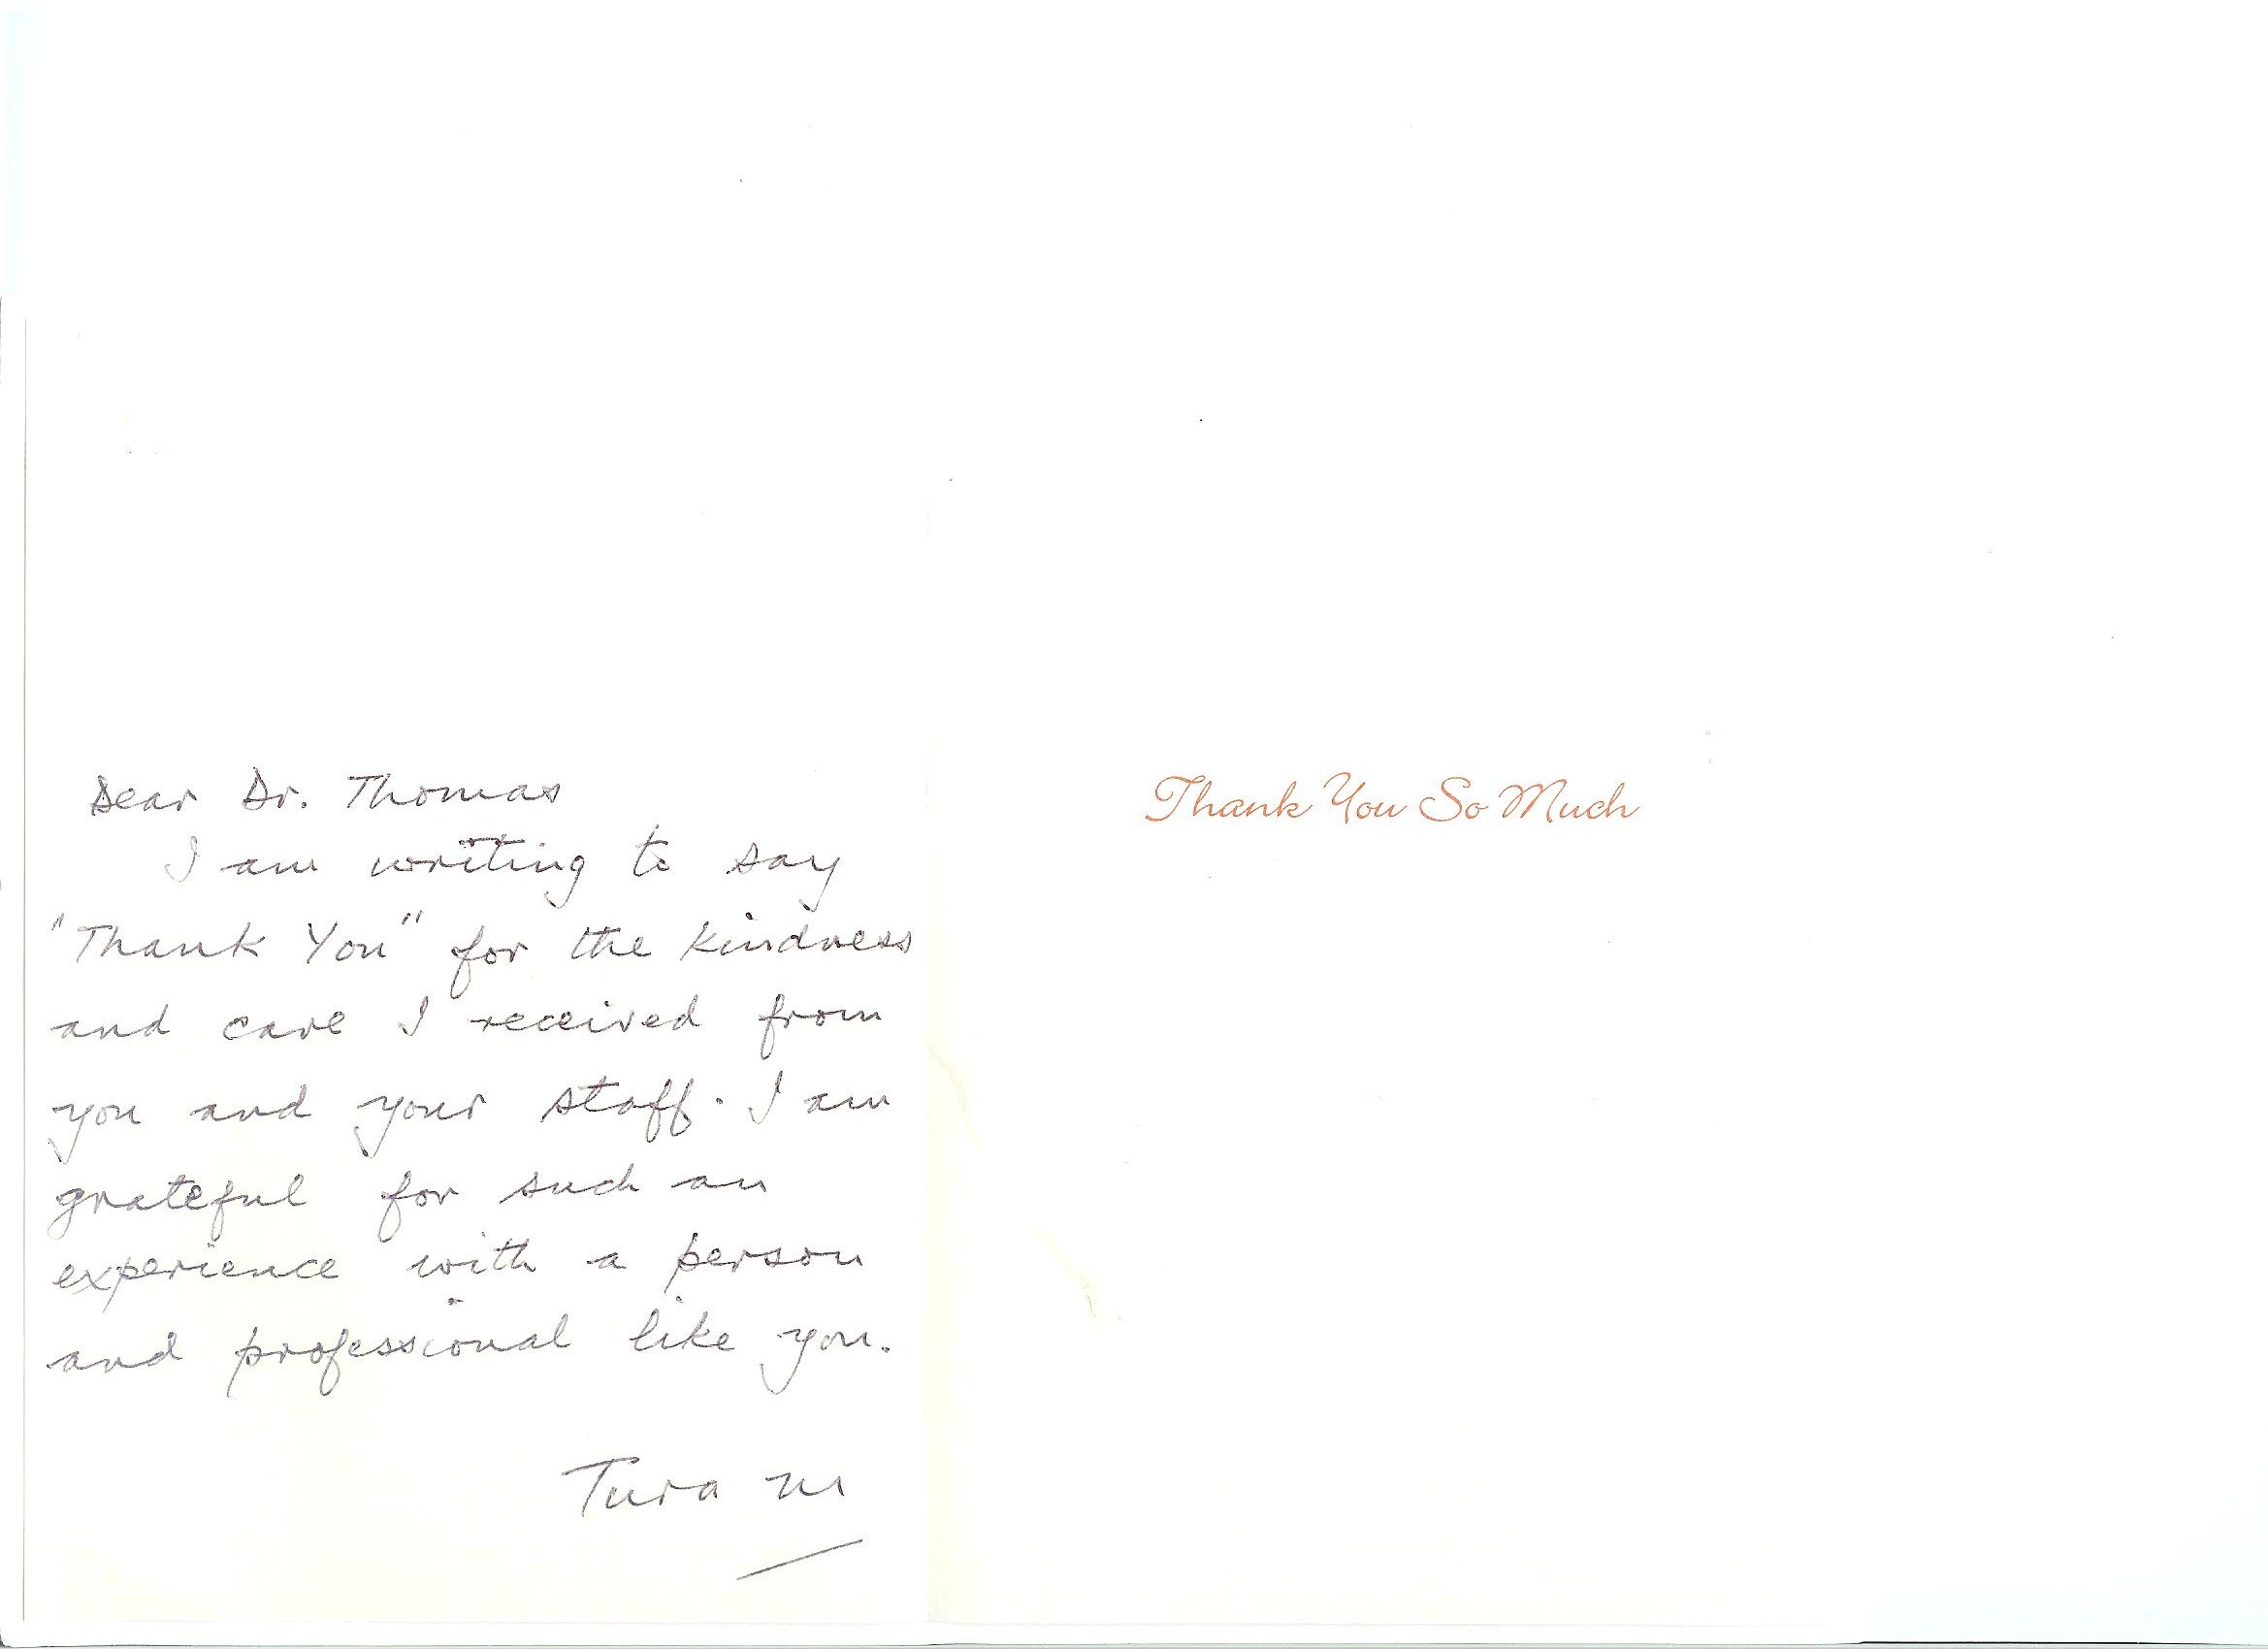 Dear Dr. Thomas
I am writing to say
"Thank You" for the kindness
and care I received from
you and your staff. I am
grateful for such an
experience with a person
and professional like you.
Tura M
Thank You So Much